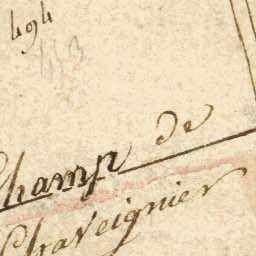 494
113
Champ de
Chaveignier